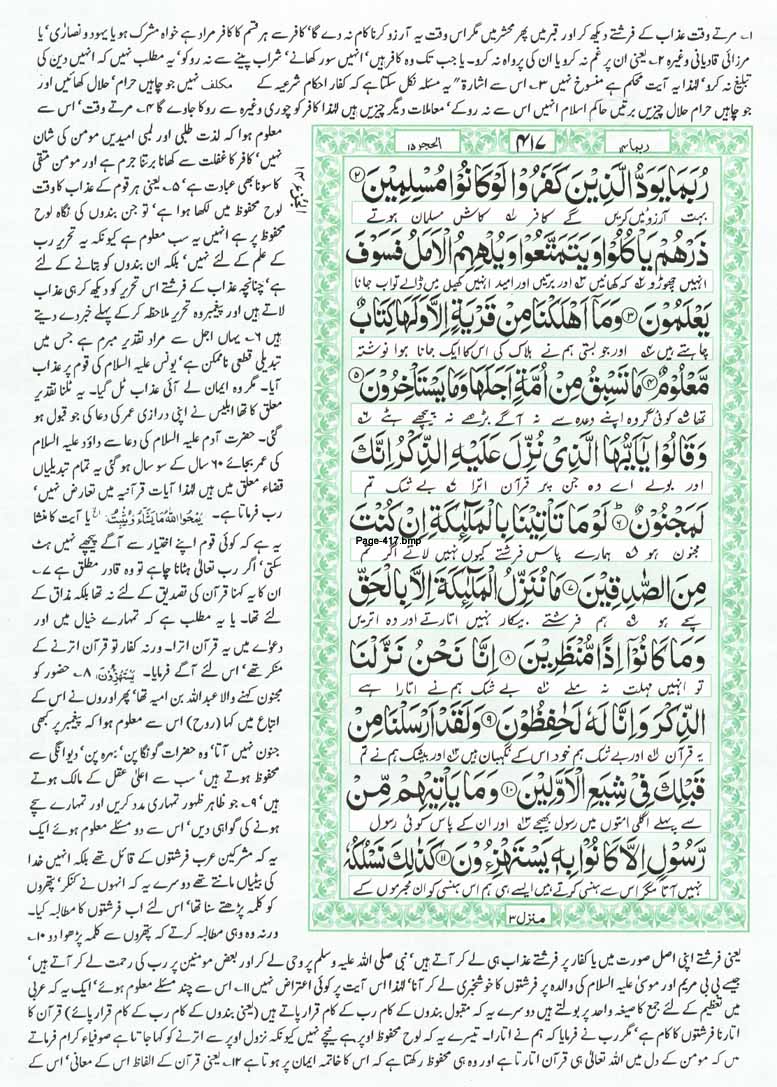 ۱۔ مرتے وقت عذاب کے فرشتے دیکھ کر اور قبر میں پھر محشر میں مگر اس وقت یہ آرزو کرنا کام نہ دے گا‘ کافر سے ہر قسم کا کافر مراد ہے خواہ مشرک ہو یا یہود و نصاریٰ‘ یا
مرزائی قادیانی وغیرہ ۲۔ یعنی ان پر غم نہ کرو یا ان کی پرواہ نہ کرو۔ یا جب تک وہ کافر ہیں‘ انہیں سور کھانے‘ شراب پینے سے نہ روکو‘ یہ مطلب نہیں کہ انہیں دین کی
تبلیغ نہ کرو‘ لہٰذا یہ آیت محکم ہے منسوخ نہیں ۳۔ اس سے اشارۃ" یہ مسئلہ نکل سکتا ہے کہ کفار احکام شرعیہ کے مکلف نہیں جو چاہیں حرام‘ حلال کھائیں اور
جو چاہیں حرام حلال چیزیں برتیں حاکم اسلام انہیں اس سے نہ روکے‘ معاملات دیگر چیزیں ہیں لہٰذا کافر کو چوری وغیرہ سے روکا جاوے گا ۴۔ مرتے وقت‘ اس سے
معلوم ہوا کہ لذت طلبی اور لمبی امیدیں مومن کی شان
نہیں‘ کافر کا غفلت سے کھانا برتنا جرم ہے اور مومن متقی
کا سونا بھی عبادت ہے‘ ۵۔ یعنی ہر قوم کے عذاب کا وقت
لوح محفوظ میں لکھا ہوا ہے‘ تو جن بندوں کی نگاہ لوح
محفوظ پر ہے انہیں یہ سب معلوم ہے کیونکہ یہ تحریر رب
کے علم کے لئے نہیں‘ بلکہ ان بندوں کو بتانے کے لئے
ہے‘ چنانچہ عذاب کے فرشتے اس تحریر کو دیکھ کر ہی عذاب
لاتے ہیں اور پیغمبر وہ تحریر ملاحظہ کر کے پہلے خبر دے دیتے
ہیں ۶۔ یہاں اجل سے مراد تقدیر مبرم ہے جس میں
تبدیلی قطعی ناممکن ہے‘ یونس علیہ السلام کی قوم پر عذاب
آیا۔ مگر وہ ایمان لے آئی عذاب ٹل گیا۔ یہ ٹلنا تقدیر
معلق کا تھا ابلیس نے اپنی درازی عمر کی دعا کی جو قبول ہو
گئی۔ حضرت آدم علیہ السلام کی دعا سے داؤد علیہ السلام
کی عمر بجائے ۶۰ سال کے سو سال ہو گئی یہ تمام تبدیلیاں
قضاء معلق میں ہیں لہٰذا آیات قرآنیہ میں تعارض نہیں‘
رب فرماتا ہے۔ یمحوا اللہ مایشاء ویثبت یا آیت کا منشا
یہ ہے کہ کوئی قوم اپنے اختیار سے آگے پیچھے نہیں ہٹ
سکتی‘ اگر رب تعالیٰ ہٹانا چاہے تو وہ قادر مطلق ہے ۷۔
ان کا یہ کہنا قرآن کی تصدیق کے لئے نہ تھا بلکہ مذاق کے
لئے تھا۔ یا یہ مطلب ہے کہ تمہارے خیال میں اور
دعوٰے میں یہ قرآن اترا۔ ورنہ کفار تو قرآن اترنے کے
منکر تھے‘ اس لئے آگے فرمایا۔ یستھزءون ۸۔ حضور کو
مجنون کہنے والا عبداللہ بن امیہ تھا‘ پھر اوروں نے اس کے
اتباع میں کہا (روح) اس سے معلوم ہوا کہ پیغمبر پر کبھی
جنون نہیں آتا‘ وہ حضرات گونگا پن‘ بہرہ پن‘ دیوانگی سے
محفوظ ہوتے ہیں‘ سب سے اعلیٰ عقل کے مالک ہوتے
ہیں‘ ۹۔ جو ظاہر ظہور تمہاری مدد کریں اور تمہارے سچے
ہونے کی گواہی دیں‘ اس سے دو مسئلے معلوم ہوئے ایک
یہ کہ مشرکین عرب فرشتوں کے قائل تھے بلکہ انہیں خدا
کی بیٹیاں مانتے تھے دوسرے یہ کہ انہوں نے کنکر‘ پتھروں
کو کلمہ پڑھتے سنا تھا‘ اس لئے اب فرشتوں کا مطالبہ کیا۔
ورنہ وہ وہی مطالبہ کرتے کہ پتھروں سے کلمہ پڑھوا دو ۱۰۔
ربما ۱۴
۴۱۷
الحجر ۱۵
رُبَمَا يَوَدُّ الَّذِيْنَ كَفَرُوْا لَوْ كَانُوْا مُسْلِمِيْنَ ۝۲
بہت آرزوئیں کریں گے کافر کاش مسلمان ہوتے
ذَرْهُمْ يَاْكُلُوْا وَيَتَمَتَّعُوْا وَيُلْهِهِمُ الْاَمَلُ فَسَوْفَ
انہیں چھوڑو کہ کھائیں اور برتیں اور امید انہیں کھیل میں ڈالے تو اب جانا
يَعْلَمُوْنَ ۝۳ وَمَاۤ اَهْلَكْنَا مِنْ قَرْيَةٍ اِلَّا وَلَهَا كِتَابٌ
چاہتے ہیں اور جو بستی ہم نے ہلاک کی اس کا ایک جانا ہوا نوشتہ
مَّعْلُوْمٌ ۝۴ مَا تَسْبِقُ مِنْ اُمَّةٍ اَجَلَهَا وَمَا يَسْتَاْخِرُوْنَ ۝۵
تھا کوئی گروہ اپنے وعدہ سے نہ آگے بڑھے نہ پیچھے ہٹے
وَقَالُوْا يٰۤاَيُّهَا الَّذِيْ نُزِّلَ عَلَيْهِ الذِّكْرُ اِنَّكَ
اور بولے اے وہ جن پر قرآن اترا بے شک تم
لَمَجْنُوْنٌ ۝۶ لَوْمَا تَاْتِيْنَا بِالْمَلٰٓئِكَةِ اِنْ كُنْتَ
Page-417.bmp
مجنون ہو ہمارے پاس فرشتے کیوں نہیں لاتے اگر تم
مِنَ الصّٰدِقِيْنَ ۝۷ مَا نُنَزِّلُ الْمَلٰٓئِكَةَ اِلَّا بِالْحَقِّ
سچے ہو ہم فرشتے بیکار نہیں اتارتے اور وہ اتریں
وَمَا كَانُوْۤا اِذًا مُّنْظَرِيْنَ ۝۸ اِنَّا نَحْنُ نَزَّلْنَا
تو انہیں مہلت نہ ملے بے شک ہم نے اتارا ہے
الذِّكْرَ وَاِنَّا لَهٗ لَحٰفِظُوْنَ ۝۹ وَلَقَدْ اَرْسَلْنَا مِنْ
یہ قرآن اور بے شک ہم خود اس کے نگہبان ہیں اور بیشک ہم نے تم
قَبْلِكَ فِيْ شِيَعِ الْاَوَّلِيْنَ ۝۱۰ وَمَا يَاْتِيْهِمْ مِّنْ
سے پہلے اگلی امتوں میں رسول بھیجے اور ان کے پاس کوئی رسول
رَّسُوْلٍ اِلَّا كَانُوْا بِهٖ يَسْتَهْزِءُوْنَ ۝۱۱ كَذٰلِكَ نَسْلُكُهٗ
نہیں آتا مگر اس سے ہنسی کرتے ہیں ایسے ہی ہم اس ہنسی کو ان مجرموں کے
منزل ۳
یعنی فرشتے اپنی اصل صورت میں یا کفار پر فرشتے عذاب ہی لے کر آتے ہیں‘ نبی صلی اللہ علیہ وسلم پر وحی لے کر اور بعض مومنین پر رب کی رحمت لے کر آتے ہیں‘
جیسے بی بی مریم اور موسیٰ علیہ السلام کی والدہ پر فرشتوں کا خوشخبری لے کر آنا‘ لہٰذا اس آیت پر کوئی اعتراض نہیں ۱۱۔ اس سے چند مسئلے معلوم ہوئے‘ ایک یہ کہ عربی
میں تعظیم کے لئے جمع کا صیغہ واحد پر بولتے ہیں دوسرے یہ کہ مقبول بندوں کے کام رب کے کام قرار پاتے ہیں (یعنی بندوں کے کام رب کے کام قرار پائے) قرآن کا
اتارنا فرشتوں کا کام ہے‘ مگر رب نے فرمایا کہ ہم نے اتارا۔ تیسرے یہ کہ لوح محفوظ اوپر ہے نیچے نہیں کیونکہ نزول اوپر سے اترنے کو کہا جاتا ہے صوفیاء کرام فرماتے
ہیں کہ مومن کے دل میں اللہ تعالیٰ ہی قرآن اتارتا ہے اور وہ ہی محفوظ رکھتا ہے کہ اس کا خاتمہ ایمان پر ہوتا ہے ۱۲۔ یعنی قرآن کے الفاظ اس کے معانی‘ اس کے